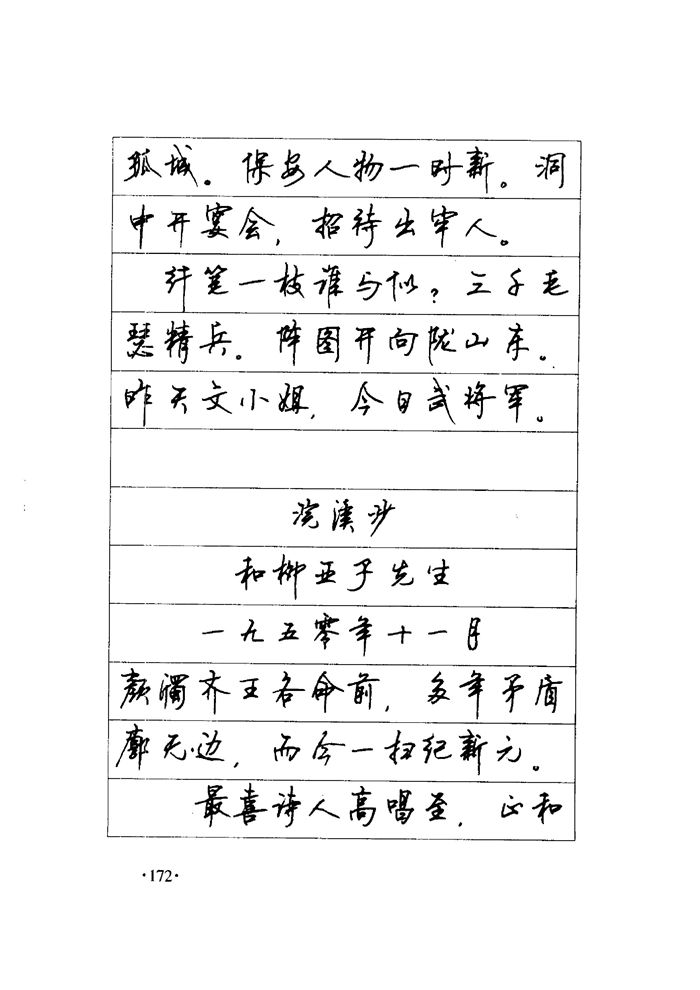 孤城。保安人物一时新。洞
中开宴会，招待出牢人。
纤笔一枝谁与似？三千毛
瑟精兵。阵图开向陇山东。
昨天文小姐，今日武将军。
浣溪沙
和柳亚子先生
一九五零年十一月
颜斶齐王各命前，多年矛盾
廓无边，而今一扫纪新元。
最喜诗人高唱至，正和
·172·